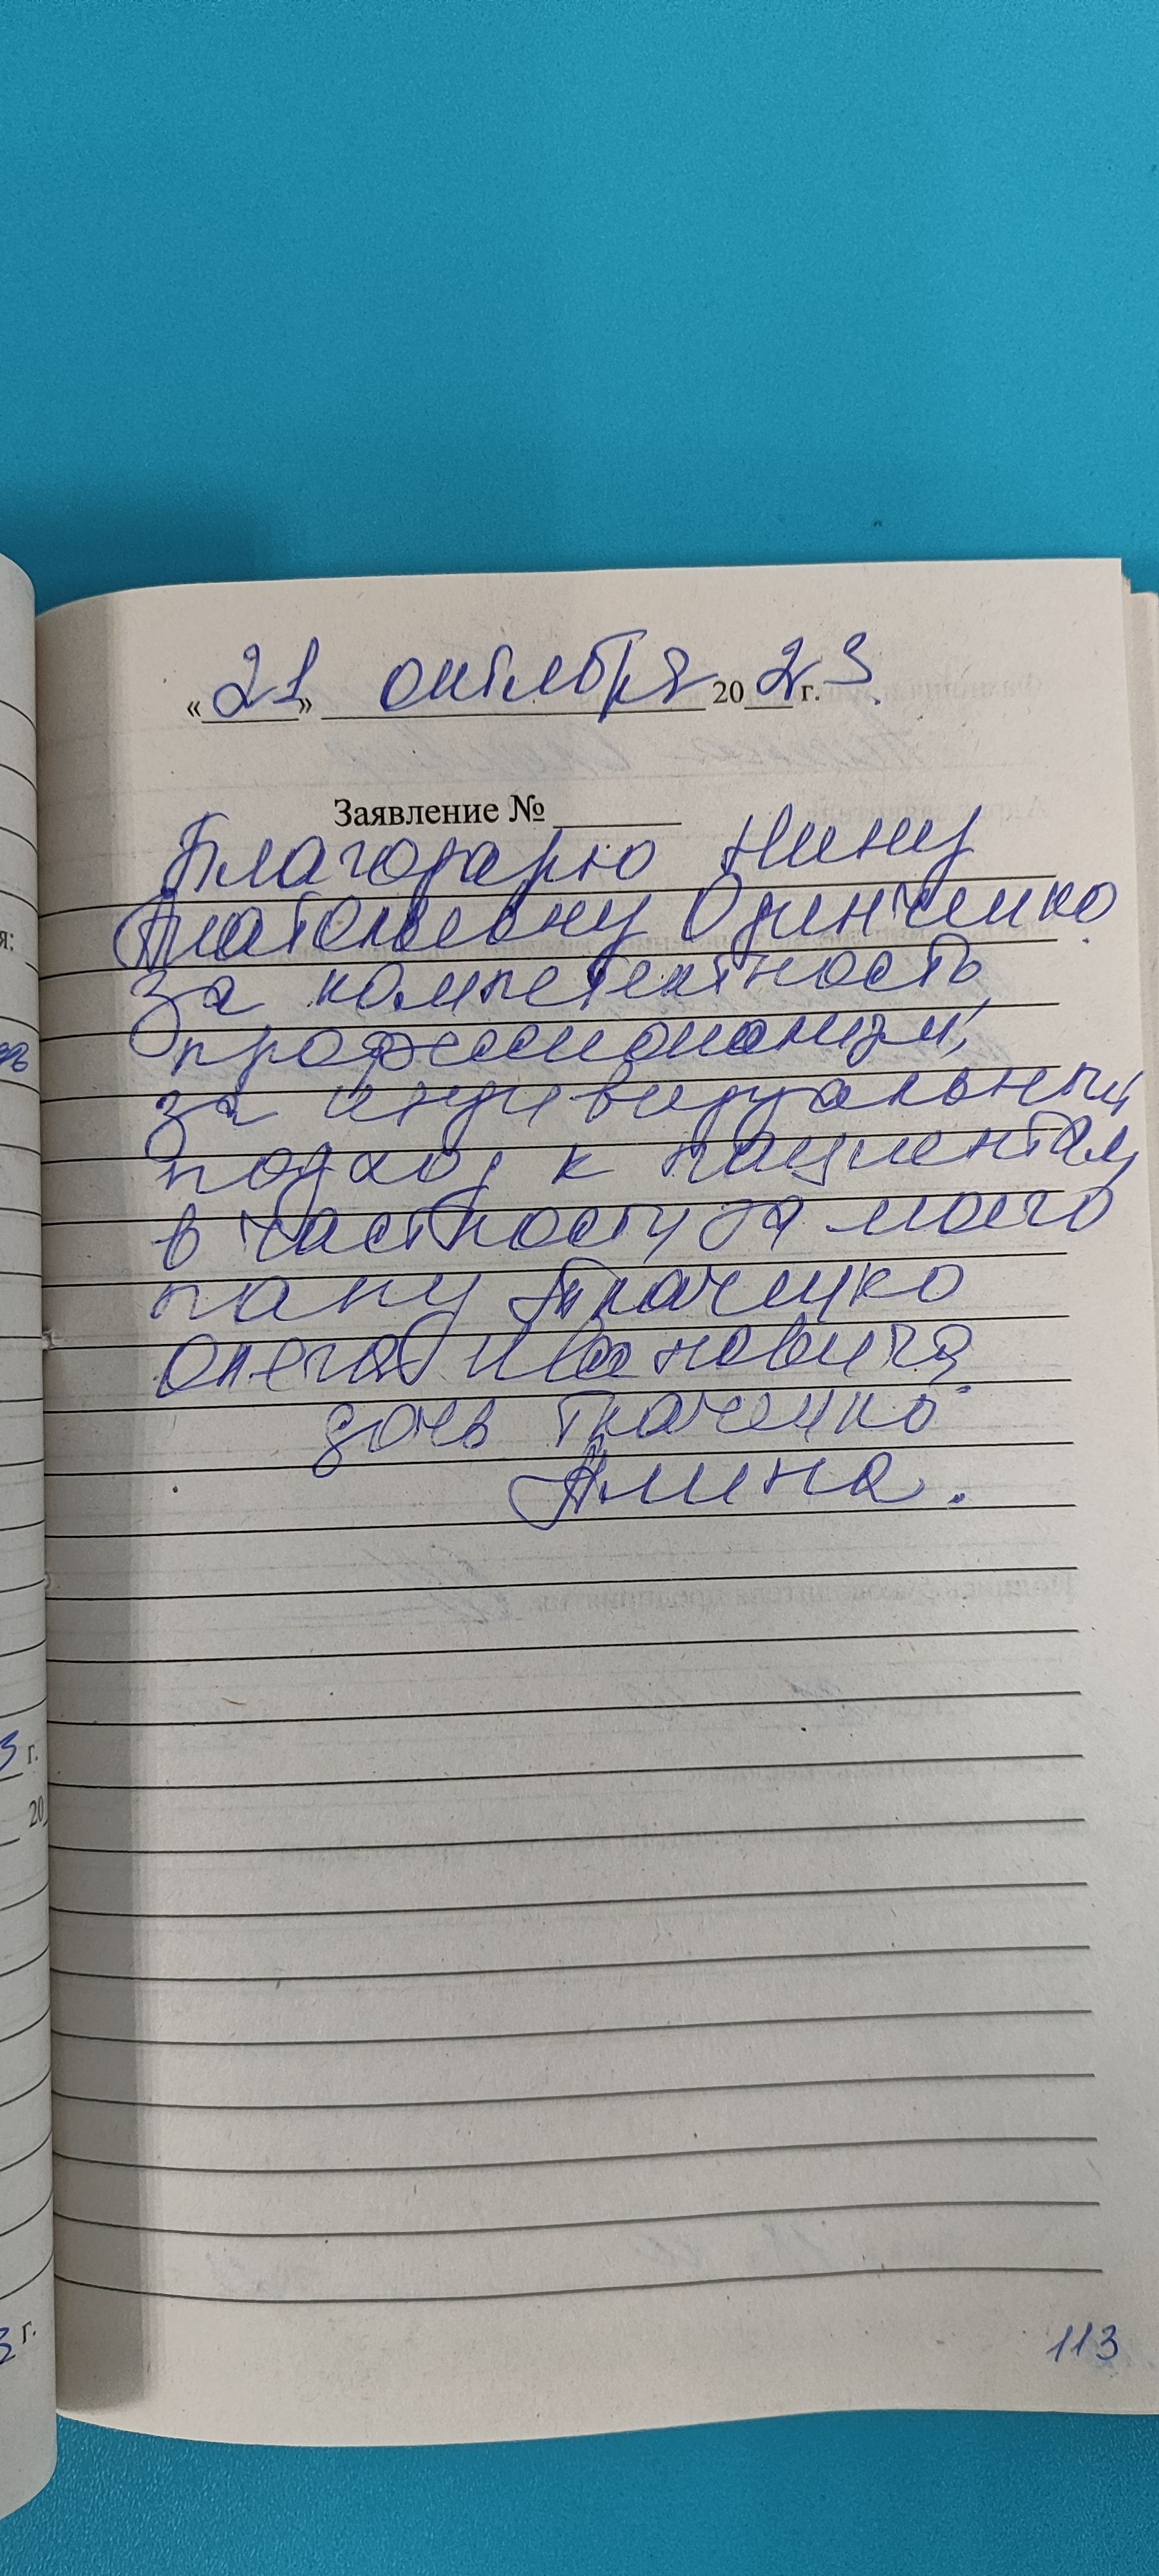 «21» октября 2023 г.
Заявление №
Благодарю Нину
Анатольевну Одинченко
за компетентность,
профессионализм,
за индивидуальный
подход к пациентам,
в частности за моего
папу Ткаченко
Олега Ивановича.
дочь Ткаченко
Алина.
я:
г.
20
г.
113